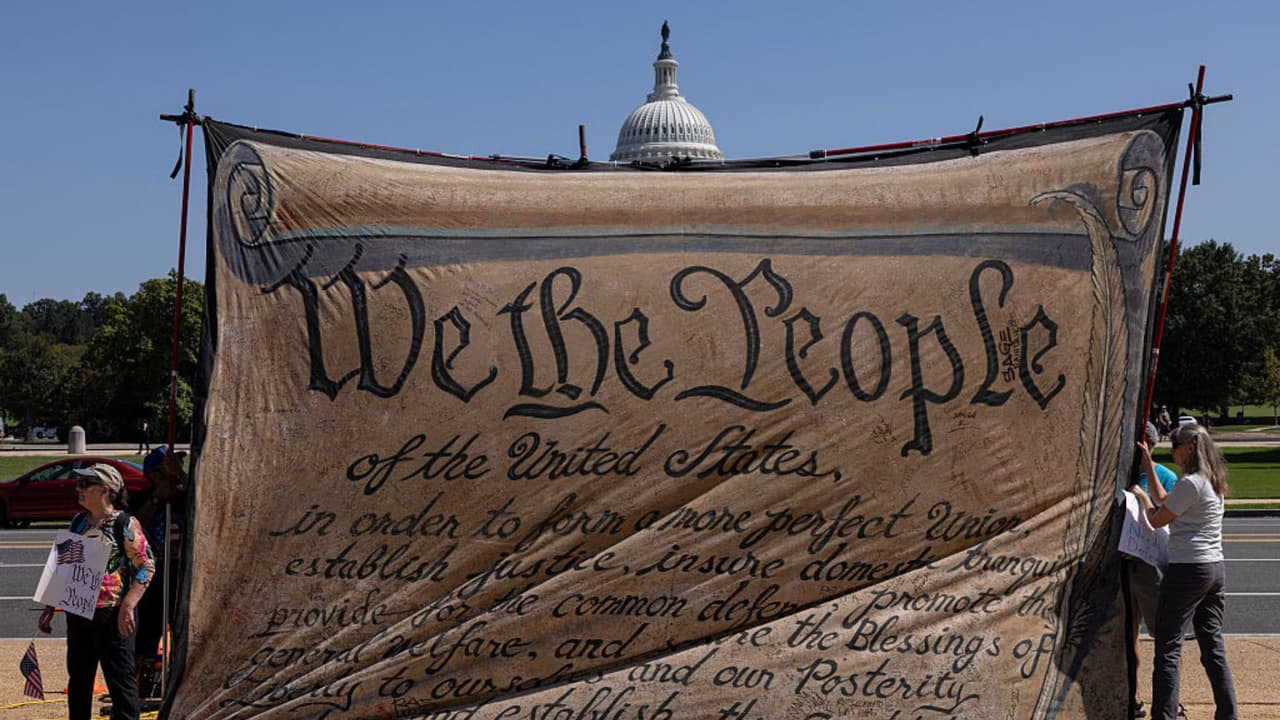 We the People
of the United States,
in order to form a more perfect Union,
establish justice, insure domestic tranqui
provide for the common defen promote the
general welfare, and s re the Blessings of
Liberty to ourselves and our Posterity
and establish the
SAGE
We the
People